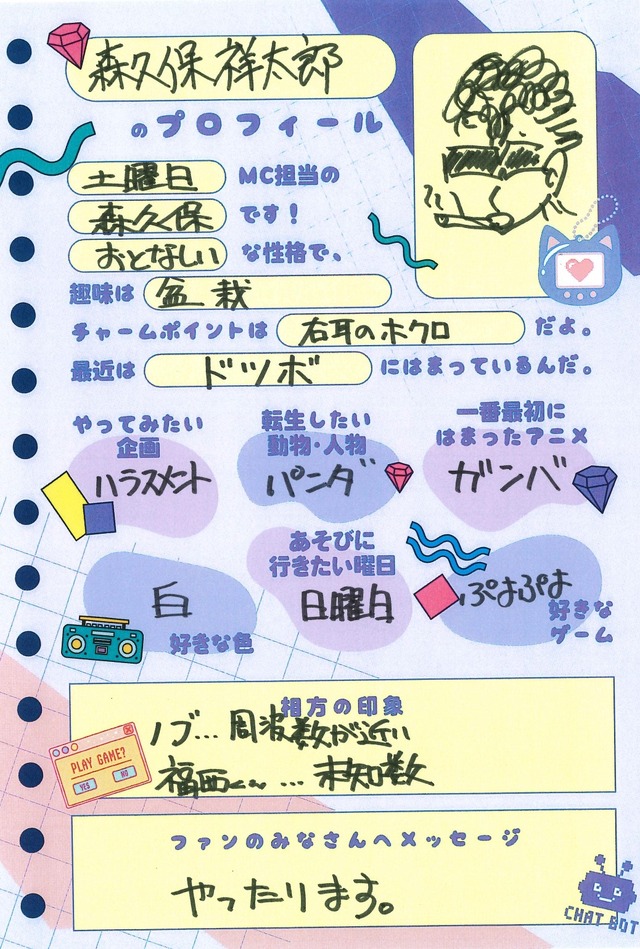 森久保祥太郎
のプロフィール
土曜日 MC担当の
森久保 です！
おとなしい な性格で、
趣味は 盆栽
チャームポイントは 右耳のホクロ だよ。
最近は ドツボ にはまっているんだ。
やってみたい
企画
ハラスメント
転生したい
動物・人物
パンダ
一番最初に
はまったアニメ
ガンバ
白
好きな色
あそびに
行きたい曜日
日曜日
ぷよぷよ
好きな
ゲーム
相方の印象
ノブ…周波数が近い
福西くん…未知数
PLAY GAME?
YES NO
ファンのみなさんへメッセージ
やったります。
CHAT BOT